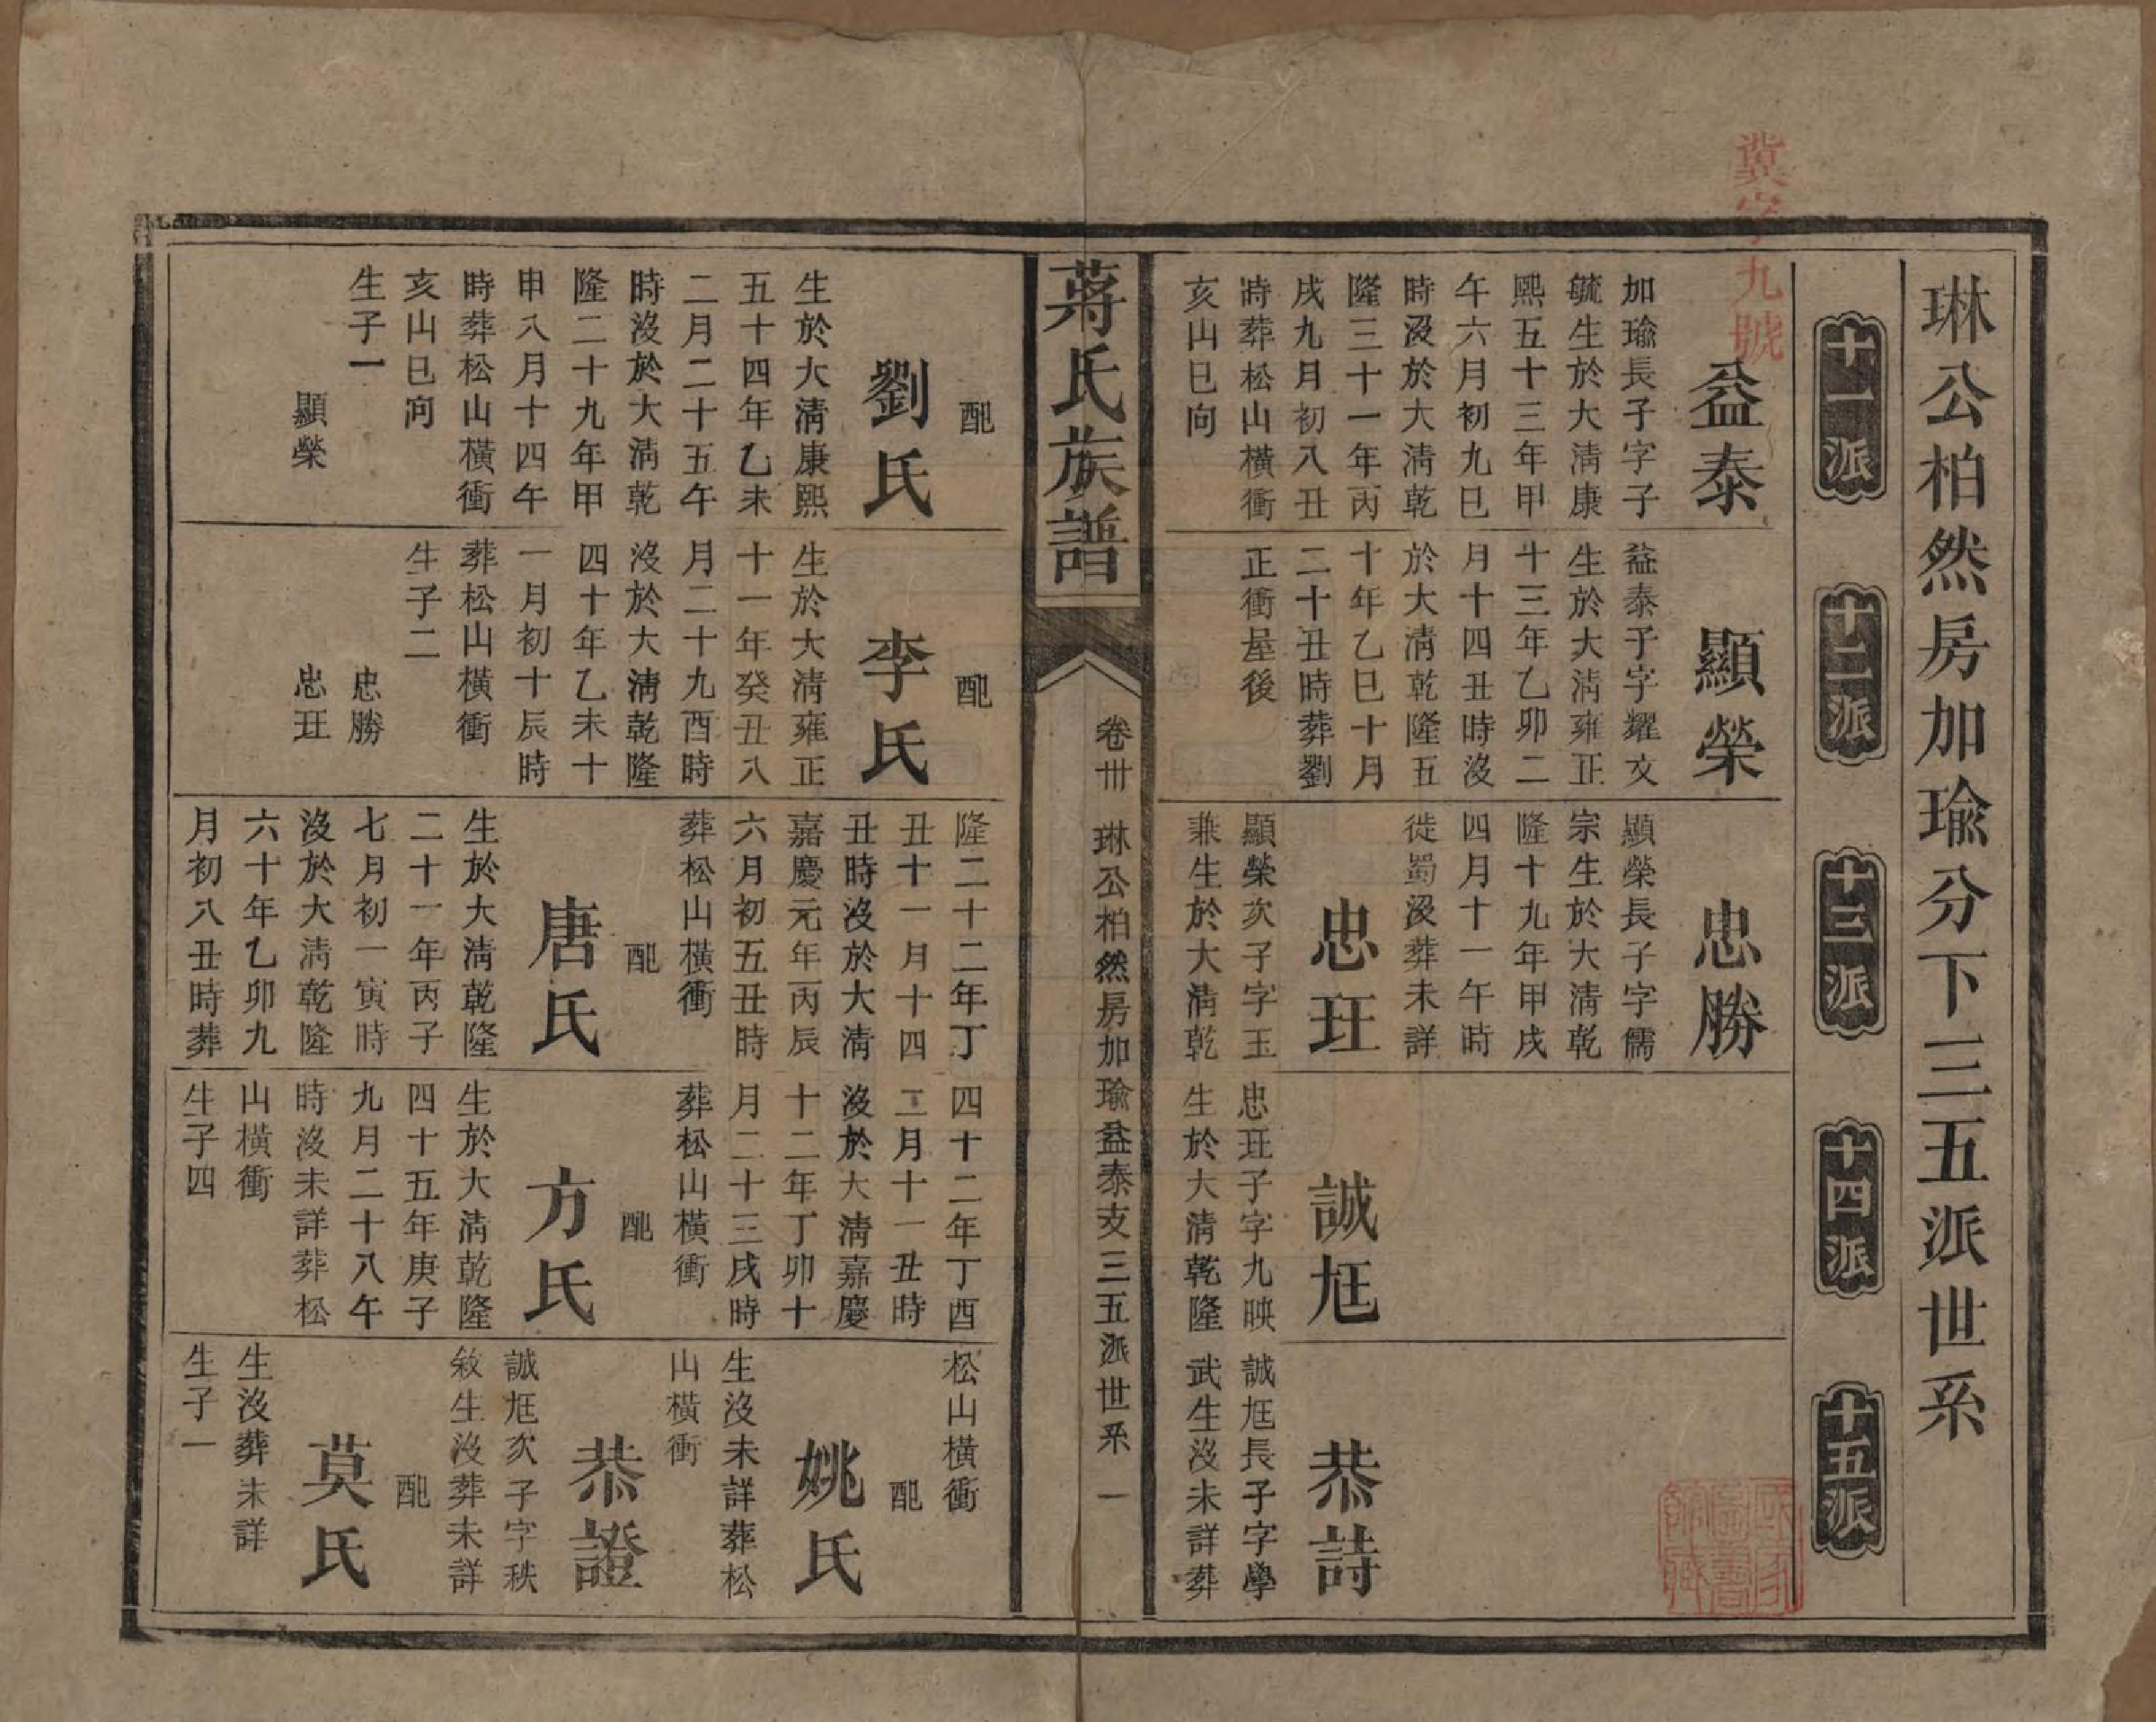 冀字九號
琳公柏然房加瑜分下三五派世系
十一派
十二派
十三派
十四派
十五派
益泰
加瑜長子字子
毓生於大清康
熙五十三年甲
午六月初九巳
時沒於大清乾
隆三十一年丙
戌九月初八丑
時葬松山橫衝
亥山巳向
顯榮
益泰子字耀文
生於大清雍正
十三年乙卯二
月十四丑時沒
於大清乾隆五
十年乙巳十月
二十丑時葬劉
正衝屋後
忠勝
顯榮長子字儒
宗生於大清乾
隆十九年甲戌
四月十一午時
徙蜀沒葬未詳
忠玨
顯榮次子字玉
兼生於大清乾
誠尪
忠玨子字九映
生於大清乾隆
恭詩
誠尪長子字學
武生沒未詳葬
蔣氏族譜
卷卅
琳公柏然房加瑜益泰支三五派世系
一
配
劉氏
生於大清康熙
五十四年乙未
二月二十五午
時沒於大清乾
隆二十九年甲
申八月十四午
時葬松山橫衝
亥山巳向
生子一
顯榮
配
李氏
生於大清雍正
十一年癸丑八
月二十九酉時
沒於大清乾隆
四十年乙未十
一月初十辰時
葬松山橫衝
生子二
忠勝
忠玨
隆二十二年丁
丑十一月十四
丑時沒於大清
嘉慶元年丙辰
六月初五丑時
葬松山橫衝
配
唐氏
生於大清乾隆
二十一年丙子
七月初一寅時
沒於大清乾隆
六十年乙卯九
月初八丑時葬
四十二年丁酉
二月十一丑時
沒於大清嘉慶
十二年丁卯十
月二十三戌時
葬松山橫衝
配
方氏
生於大清乾隆
四十五年庚子
九月二十八午
時沒未詳葬松
山橫衝
生子四
松山橫衝
配
姚氏
生沒未詳葬松
山橫衝
恭證
誠尪次子字秩
敘生沒葬未詳
配
莫氏
生沒葬未詳
生子一